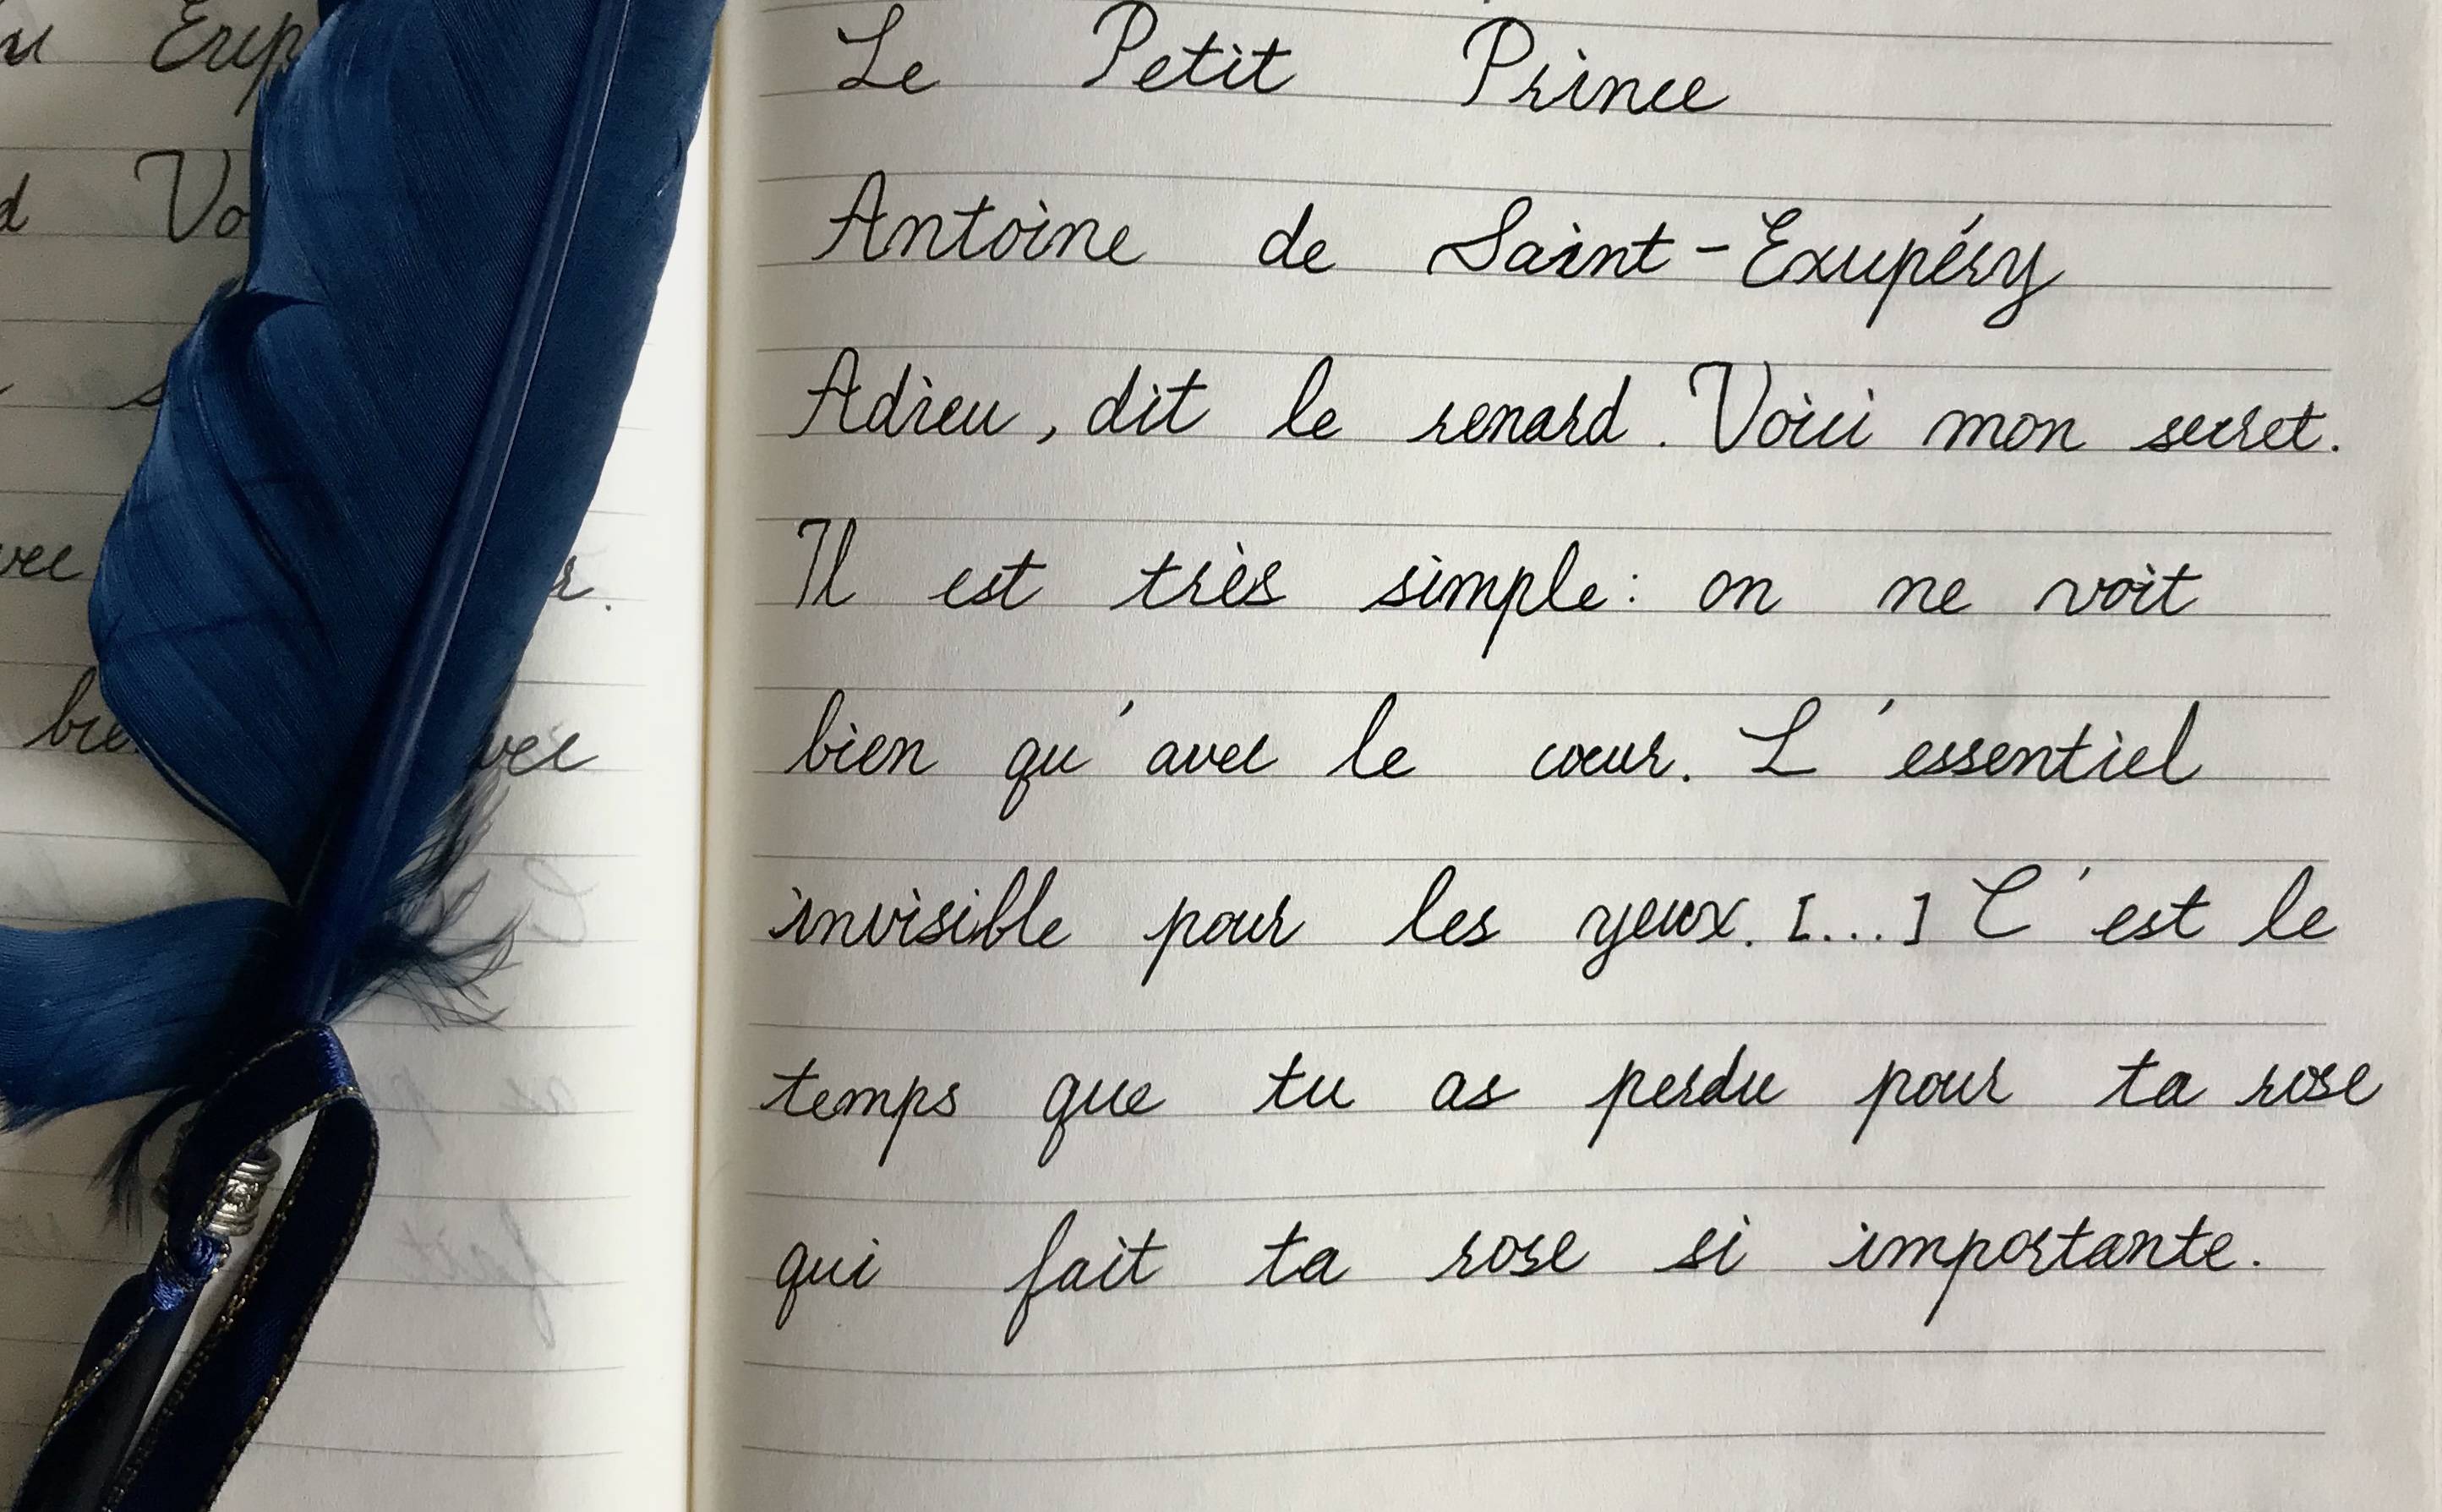 Le Petit Prince
Antoine de Saint-Exupéry
Adieu, dit le renard. Voici mon secret.
Il est très simple: on ne voit
bien qu'avec le cœur. L'essentiel
invisible pour les yeux. [...] C'est le
temps que tu as perdu pour ta rose
qui fait ta rose si importante.